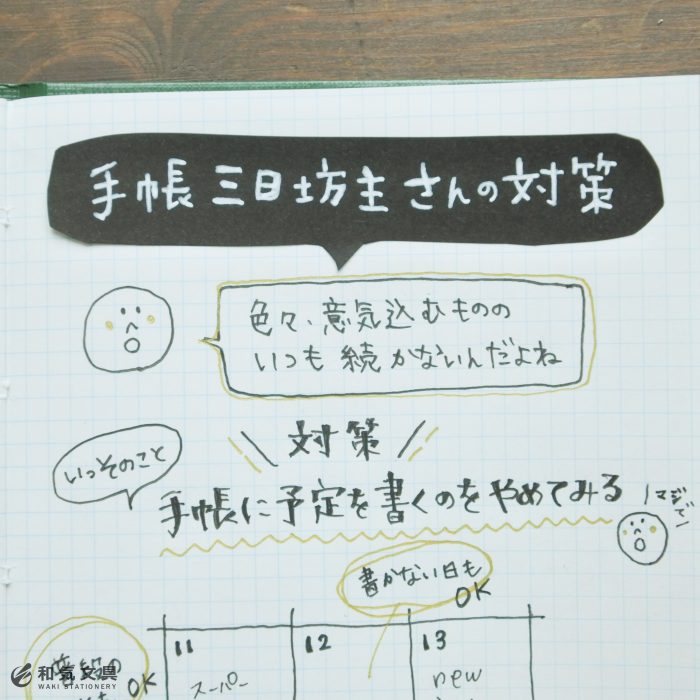 手帳三日坊主さんの対策
色々、意気込むものの
いつも続かないんだよね
対策
いっそのこと
手帳に予定を書くのをやめてみる
マジで
書かない日も
OK
11
12
13
OK
スーパー
new
和気文具
WAKI STATIONERY